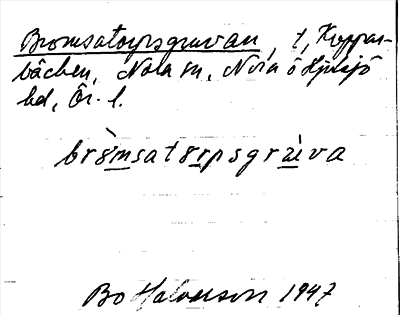 Bromsatorpsgruvan, t, Koppar-
bäcken, Nora sn, Nora ö Hjulsjö
hd, Ör. l.
bròmsatorpsgrùva
Bo Halvarson 1947